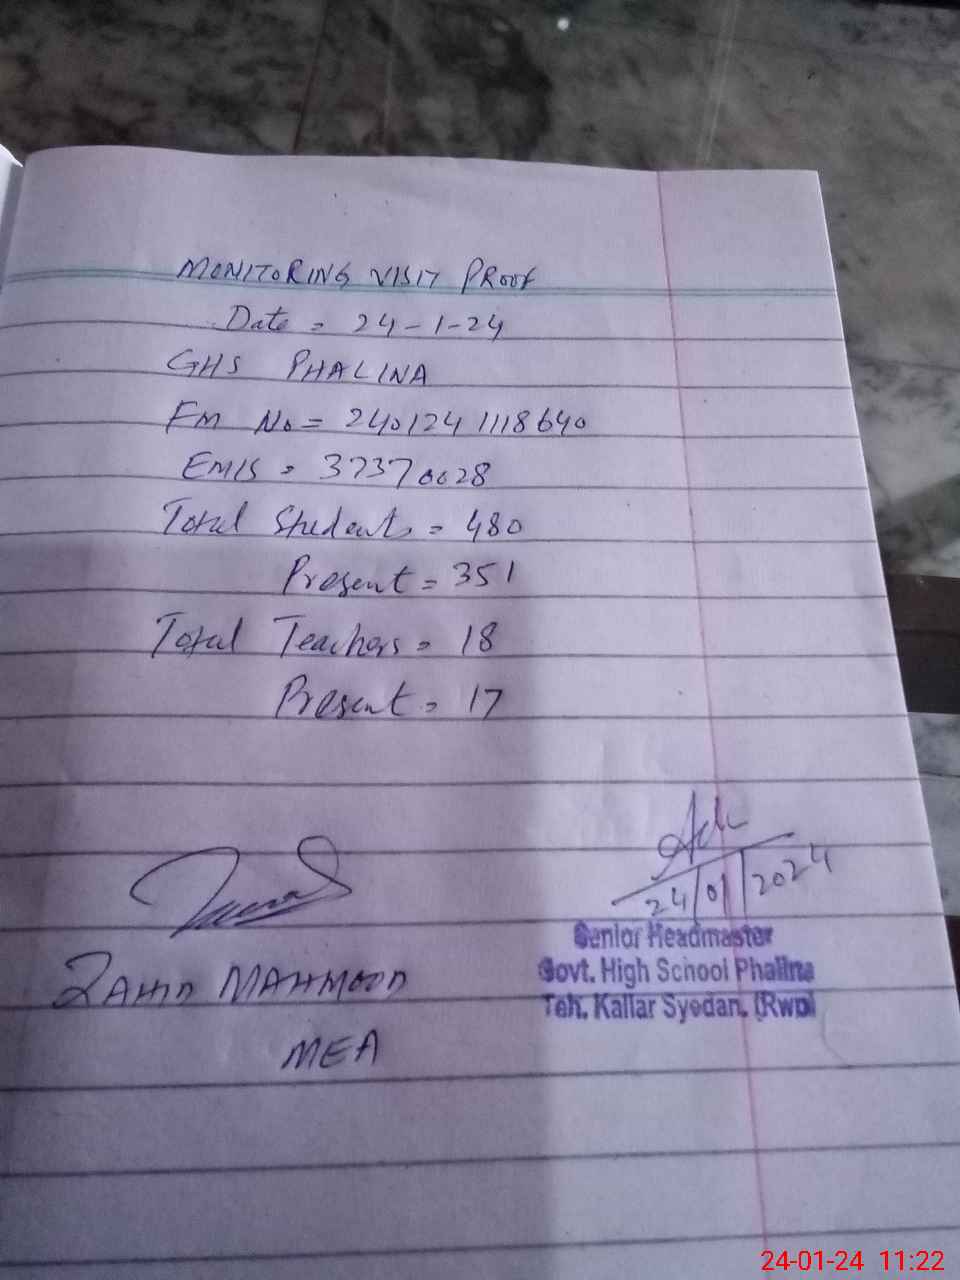 MONITORING VISIT PROOF
Date = 24-1-24
GHS PHALINA
Fm No = 2401241118640
EMIS = 37370028
Total Students = 480
Present = 351
Total Teachers = 18
Present = 17
24/01/2024
Senior Headmaster
Govt. High School Phalina
Teh. Kallar Syedan. (Rwp)
ZAHID MAHMOOD
MEA
24-01-24 11:22